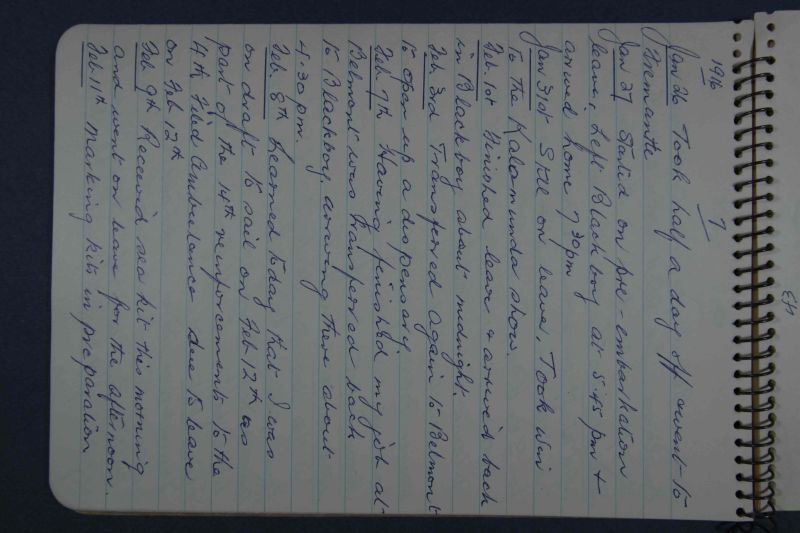 1916
7
Jan 26 Took half a day off & went to
Fremantle
Jan 27 Started on pre-embarkation
leave, Left Blackboy at 5.45 pm &
arrived home 7.30 pm
Jan 31st Still on leave, Took Win
to the Kalamunda show.
Feb. 1st Finished leave & arrived back
in Blackboy about midnight.
Feb 3rd Transferred again to Belmont
to open up a dispensary
Feb 7th Having finished my job at
Belmont was transferred back
to Blackboy, arriving there about
4.30 pm.
Feb. 8th Learned today that I was
on draft to sail on Feb 12th as
part of the 14th reinforcements to the
4th Field Ambulance due to leave
on Feb 12th
Feb 9th Received sea kit this morning
and went on leave for the afternoon.
Feb. 11th Marking kits in preparation